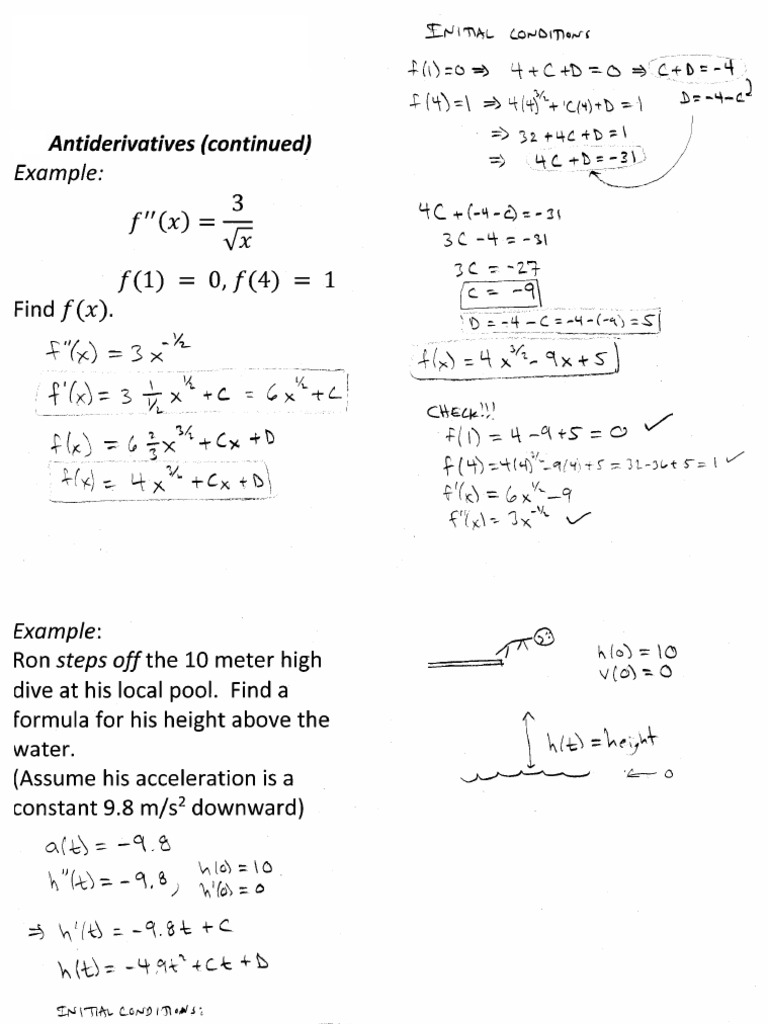 Antiderivatives (continued)
Example:
f''(x) = 3/√x
f(1) = 0, f(4) = 1
Find f(x).
f''(x) = 3x^(-1/2)
f'(x) = 3 1/(1/2) x^(1/2) + C = 6x^(1/2) + C
f(x) = 6 2/3 x^(3/2) + Cx + D
f(x) = 4x^(3/2) + Cx + D
INITIAL CONDITIONS
f(1)=0 ⇒ 4+C+D=0 ⇒ C+D=-4
f(4)=1 ⇒ 4(4)^(3/2)+C(4)+D=1
D=-4-C
⇒ 32+4C+D=1
⇒ 4C+D=-31
4C+(-4-C)=-31
3C-4=-31
3C=-27
C=-9
D=-4-C=-4-(-9)=5
f(x)=4x^(3/2)-9x+5
CHECK!!!
f(1)=4-9+5=0 ✓
f(4)=4(4)^(3/2)-9(4)+5=32-36+5=1 ✓
f'(x)=6x^(1/2)-9
f''(x)=3x^(-1/2) ✓
Example:
Ron steps off the 10 meter high
dive at his local pool. Find a
formula for his height above the
water.
(Assume his acceleration is a
constant 9.8 m/s² downward)
h(0)=10
v(0)=0
h(t)=height
← 0
a(t)=-9.8
h''(t)=-9.8, h(0)=10
h'(0)=0
⇒ h'(t)=-9.8t+C
h(t)=-4.9t²+Ct+D
INITIAL CONDITIONS: